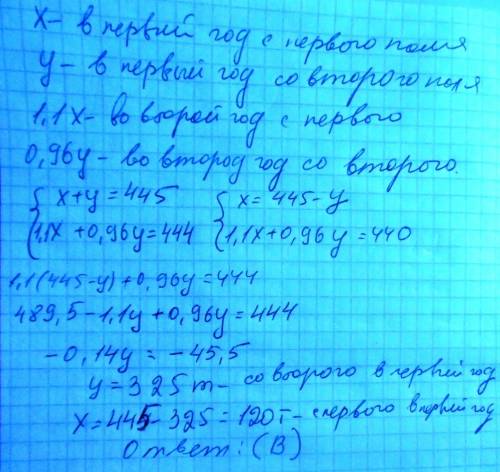 х – в первый год с первого поля
у – в первый год со второго поля
1,1х – во второй год с первого
0,96у – во второй год со второго.
{ х+у=445 { х=445-у
{ 1,1х+0,96у=444 { 1,1х+0,96у=440
1,1(445-у)+0,96у=444
489,5-1,1у+0,96у=444
-0,14у=-45,5
у=325т – со второго в первый год
х=445-325=120т – с первого в первый год
Ответ: (В)